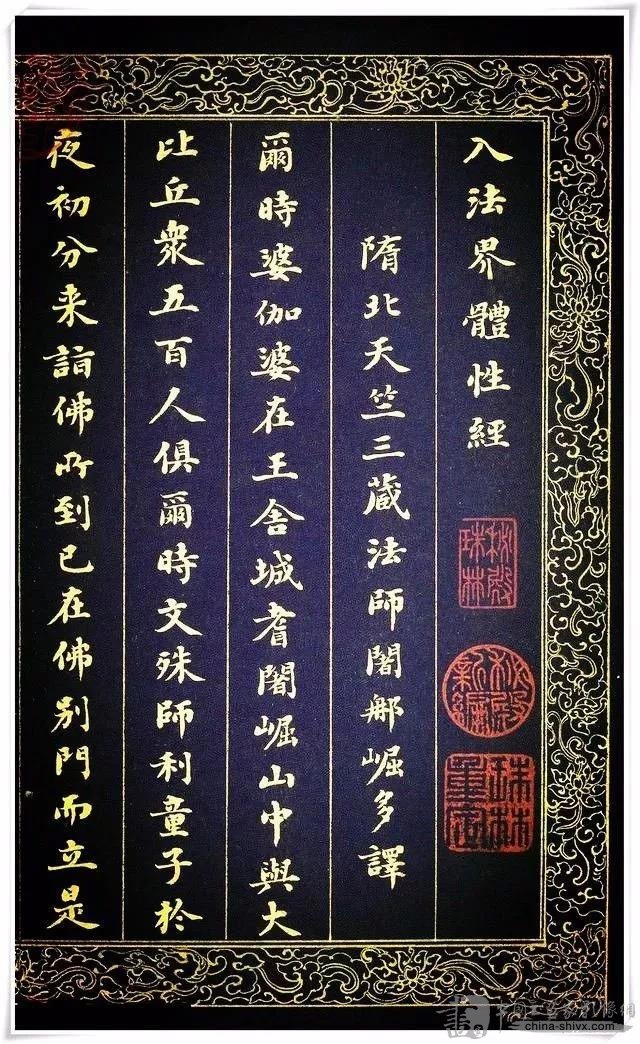 入法界體性經
隋北天竺三藏法師闍那崛多譯
爾時婆伽婆在王舍城耆闍崛山中與大
比丘衆五百人俱爾時文殊師利童子於
夜初分来詣佛所到已在佛别門而立是
秘殿珠林
秘殿新編
珠林重定
china-shivx.com